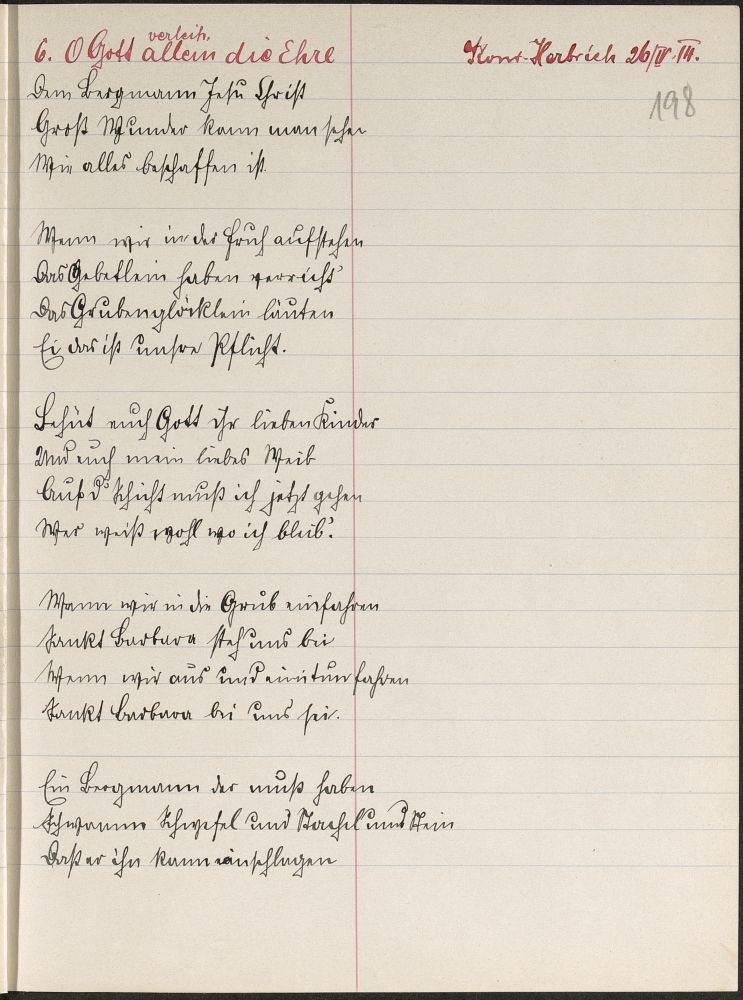 verleih.
6. O Gott allein die Ehre
Konr. Herbrich 26/IV.14.
198
Dem Bergmann Jesu Christ
Groß Wunder kann man sehen
Wie alles beschaffen ist.
Wenn wir in der Früh aufstehen
Das Gebetlein haben verricht'
Das Grubenglöcklein läuten
Ei das ist unsre Pflicht.
Behüt euch Gott ihr lieben Kinder
Und auch mein liebes Weib
Auf d' Schicht muß ich jetzt gehen
Wer weiß wohl wo ich bleib'.
Wann wir in die Grub einfahren
Sankt Barbara steh uns bei
Wenn wir aus und ein tun fahren
Sankt Barbara bei uns sei.
Ein Bergmann der muß haben
Schwamm Schwefel und Stachel und Stein
Daß er ihn kann einschlagen